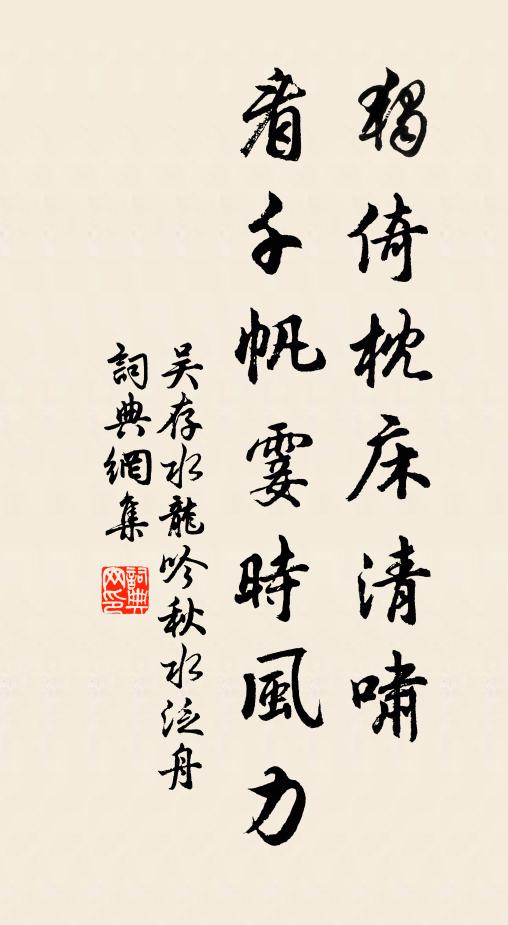 獨倚枕床清嘯
看千帆霎時風力
吴存水龍吟秋水泛舟
詞典網集
詞典網印